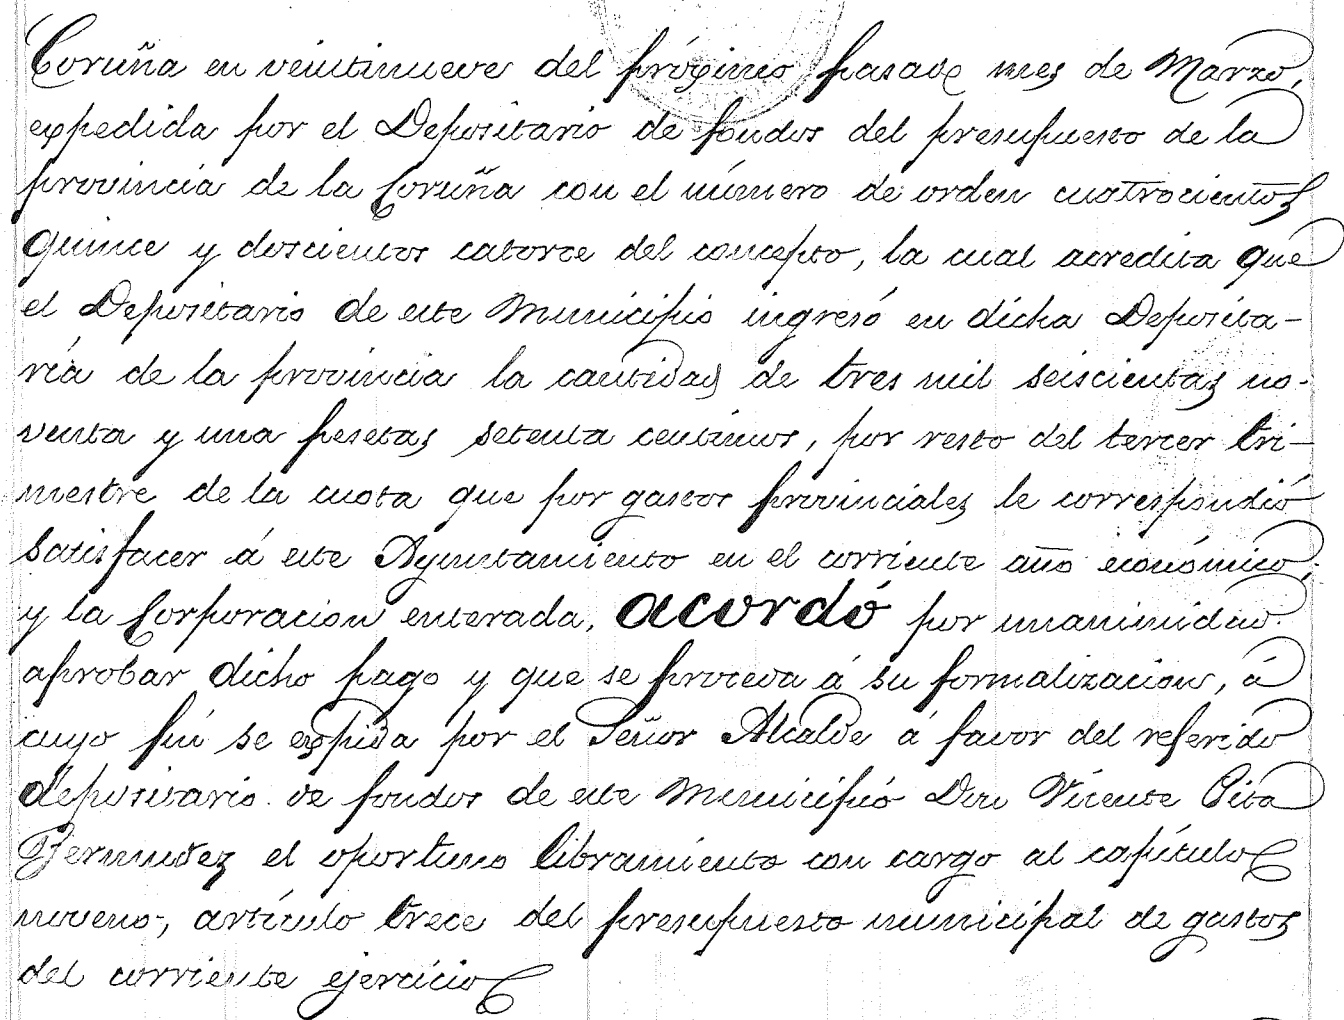 Coruña en veintinueve del próximo pasado mes de Marzo,
expedida por el Depositario de fondos del presupuesto de la
provincia de la Coruña con el número de orden cuatrocientos
quince y doscientos catorce del concepto, la cual acredita que
el Depositario de este Municipio ingresó en dicha Deposita-
ría de la provincia la cantidad de tres mil seiscientas no-
venta y una pesetas setenta centimos, por resto del tercer tri-
mestre de la cuota que por gastos provinciales le correspondió
satisfacer á este Ayuntamiento en el corriente año económico;
y la Corporacion enterada, acordó por unanimidad
aprobar dicho pago y que se proceda á su formalizacion, á
cuyo fin se expida por el Señor Alcalde á favor del referido
depositario de fondos de este Municipio Don Vicente Pita
Bermudez el oportuno libramiento con cargo al capítulo
noveno, artículo trece del presupuesto municipal de gastos
del corriente ejercicio